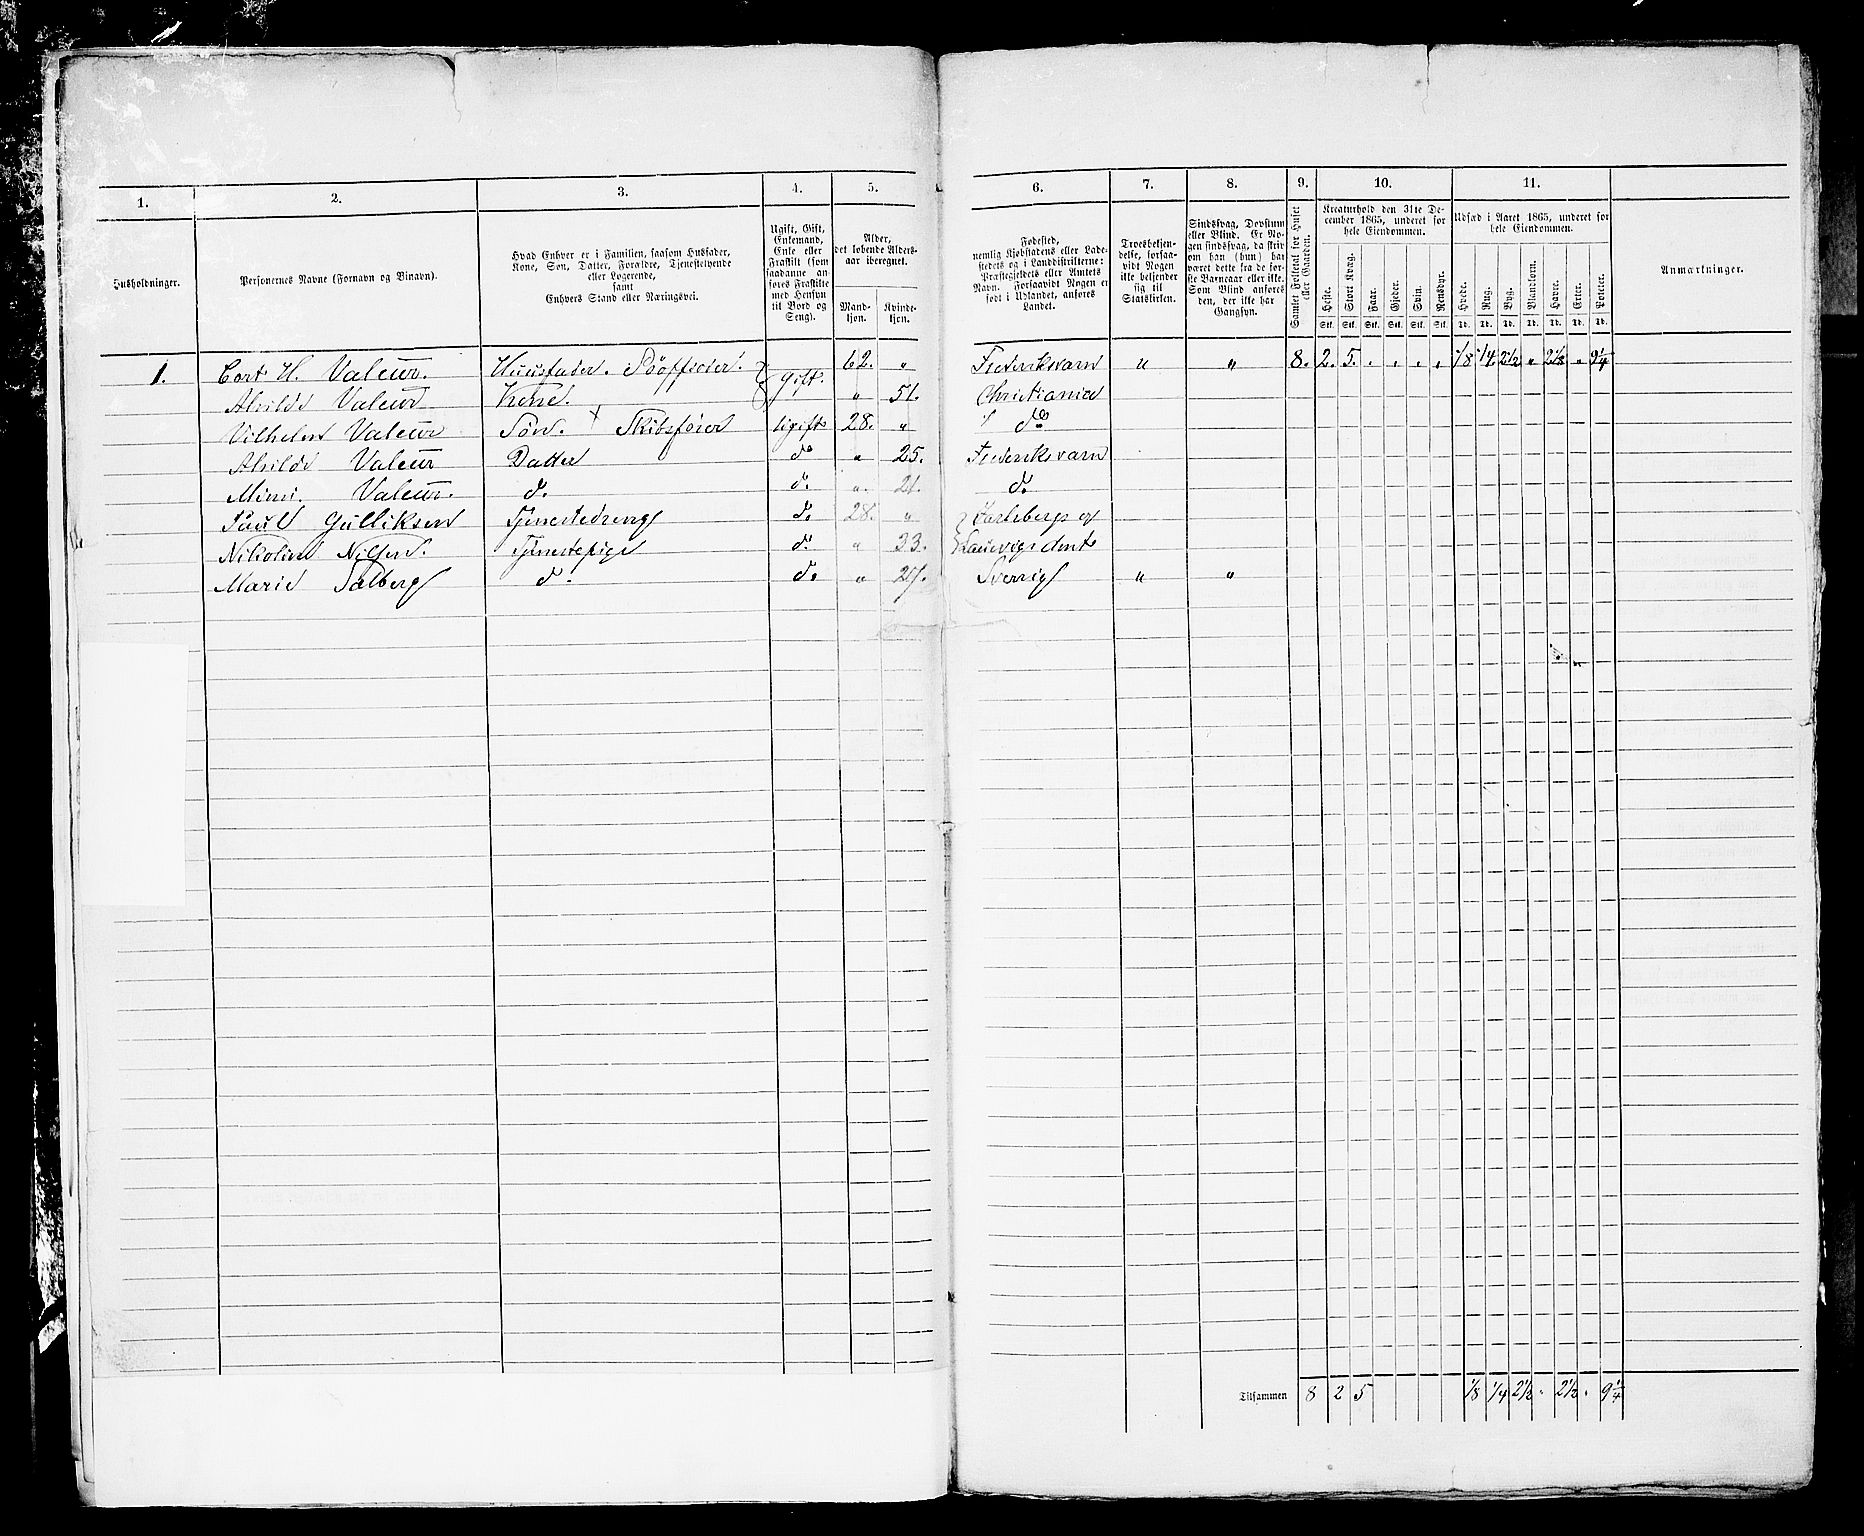 1. 2. 3. 4. 5. 6. 7. 8. 9. 10. 11.
Husholdninger.
Personernes Navne (Fornavn og Binavn).
Hvad Enhver er i Familien, saasom Husfader,
Kone, Søn, Datter, Forældre, Tjenestetyende
eller Logerende,
samt
Enhvers Stand eller Næringsvei.
Ugift, Gift,
Enkemand,
Enke eller
Fraskilt (som
saadanne an-
føres Fraskilte
med Hensyn
til Bord og
Seng).
Alder,
det løbende Alders-
aar iberegnet.
Mand-
kjøn.
Kvinde-
kjøn.
Fødested,
nemlig Kjøbstadens eller Lade-
stedets og i Landdistrikterne:
Præstegjeldets eller Amtets
Navn. Forsaavidt Nogen er
født i Udlandet, anføres
Landet.
Troesbekjen-
delse, forsaa-
vidt Nogen
ikke bekjender
sig til
Statskirken.
Sindssvag, Døvstum
eller Blind. Er No-
gen sindssvag, da skri-
ves om han (hun) har
været dette fra de før-
ste Barneaar eller ikke.
Som Blind anføres
den, der ikke har
Gangsyn.
Samlet Folketal for Huset
eller Gaarden.
Kreaturhold den 31te De-
cember 1865, underet for
hele Eiendommen.
Heste. Stort Kvæg. Faar. Gjeder. Svin. Rensdyr.
Stk. Stk. Stk. Stk. Stk. Stk.
Udsæd i Aaret 1865, underet for
hele Eiendommen.
Hvede. Rug. Byg. Blandkorn. Havre. Erter. Poteter.
Td. Td. Td. Td. Td. Td. Td.
Anmærkninger.
1. Cort H. Valeur. Huusfader. Söofficier. gift. 62. " Frederiksværn " " 8. 2. 5. . . . . 1/8 1/4 2 1/2 " 2 1/2 " 9 1/4
Alvilde Valeur Kone. " 51. Christiania
Vilhelm Valeur Sön. Skibsförer Ugift 28. " do
Alvilde Valeur Datter do " 25. Frederiksværn
Mimi. Valeur. do do " 21. do
Paul Gulliksen Tjenestedreng do 28. " Jarlsbergs og
Nikoline Nilsen. Tjenestepige do " 33. Laurvigs Amt
Marie Salberg do do " 27. Sverrig " "
Tilsammen 8 2 5 1/8 1/4 2 1/2 " 2 1/2 " 9 1/4